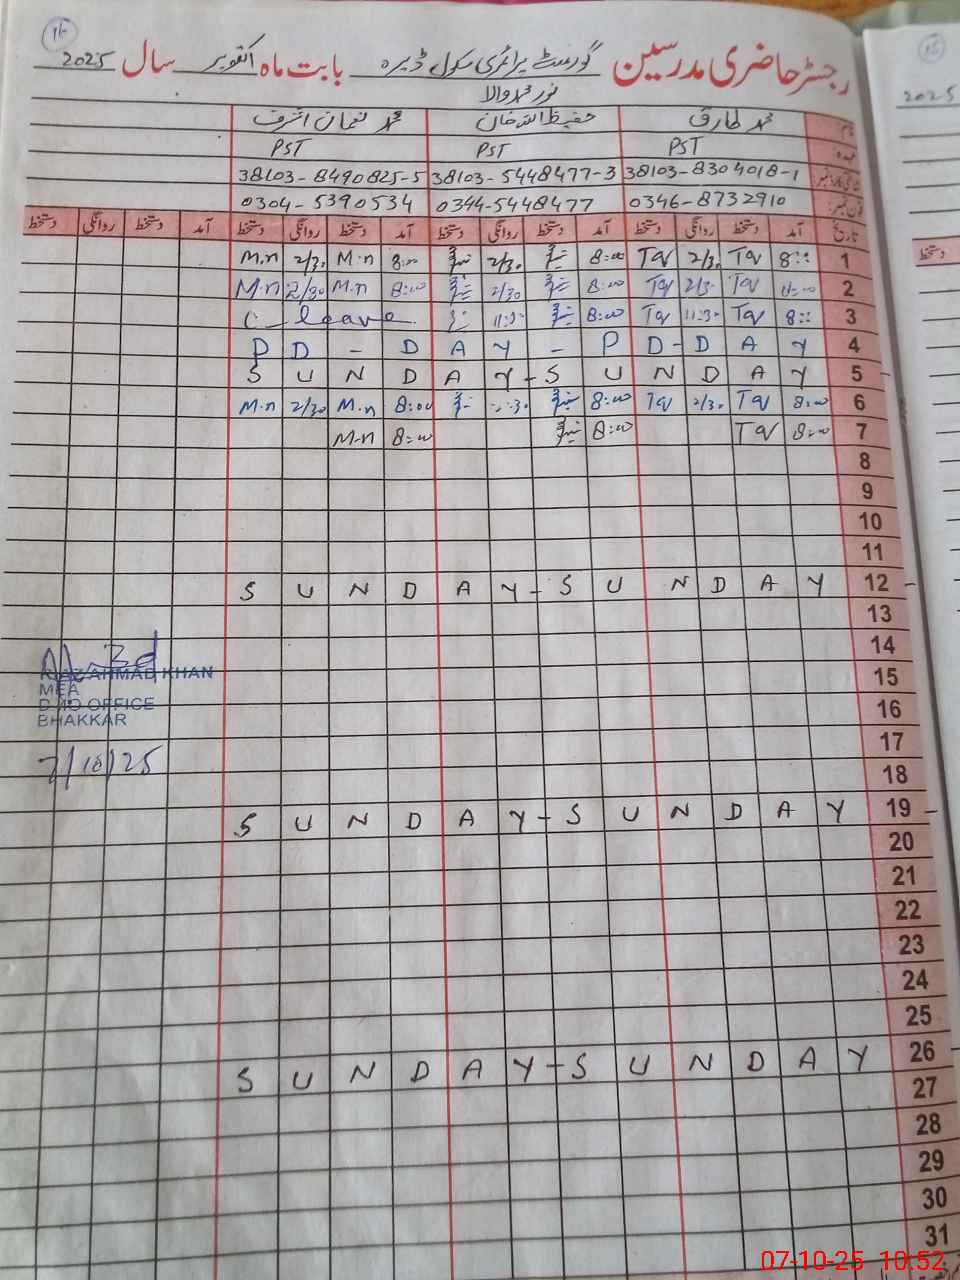 رجسٹر حاضری مدرسین گورنمنٹ پرائمری سکول ڈیرہ بابت ماہ اکتوبر سال 2025
نور محمد والا
نام محمد طارق حفیظ اللہ خان محمد نعمان اشرف
عہدہ PST PST PST
38103-8304018-1 38103-5448477-3 38103-8490825-5
فون نمبر 0346-8732910 0344-5448477 0304-5390534
تاریخ آمد دستخط روانگی دستخط آمد دستخط روانگی دستخط آمد دستخط روانگی دستخط آمد دستخط روانگی دستخط
1 8:00 Tq 2/30 Tq 8:00 2/30 8:00 M.n 2/30 M.n
2 8:00 Tq 2/30 Tq 8:00 2/30 8:00 M.n 2/30 M.n
3 8:00 Tq 11:30 Tq 8:00 11:30 C-leave
P D - D A Y - P D - D A Y 4
S U N D A Y - S U N D A Y 5
6 8:00 Tq 2/30 Tq 8:00 8:00 M.n 2/30 M.n
7 8:00 Tq 8:00 8:00 M.n
8
9
10
11
S U N D A Y - S U N D A Y 12
13
14
15
16
17
18
S U N D A Y - S U N D A Y 19
20
21
22
23
24
25
S U N D A Y - S U N D A Y 26
27
28
29
30
31
AHMAD KHAN
MEA
DMO OFFICE
BHAKKAR
7/10/25
2025
دستخط
07-10-25 10:52